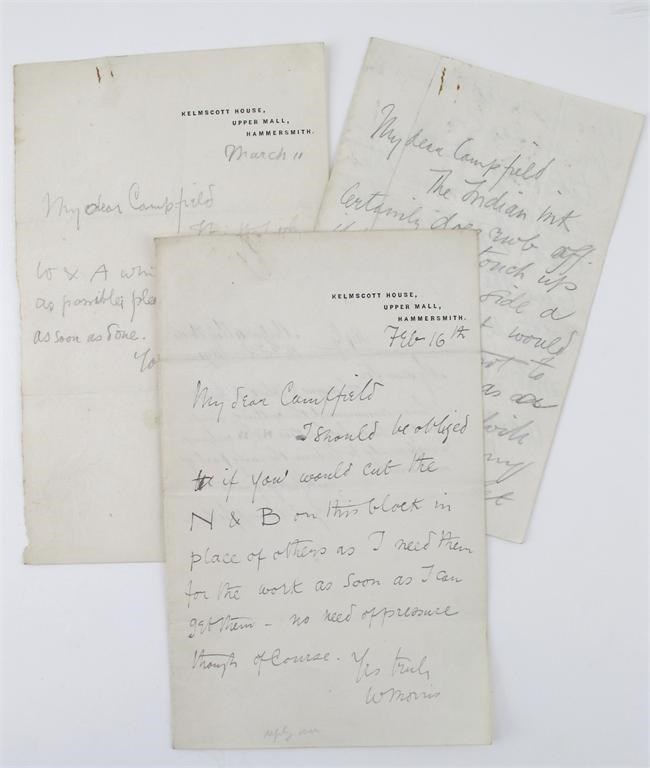 KELMSCOTT HOUSE,
UPPER MALL,
HAMMERSMITH.
March 11
My dear Campfield
W & A
as possible
as soon as done.
My dear Campfield
The Indian ink
certainly does rub off.
touch up
side a
would
to
as
KELMSCOTT HOUSE,
UPPER MALL,
HAMMERSMITH.
Feb 16th
My dear Campfield
I should be obliged
if you would cut the
N & B on this block in
place of others as I need them
for the work as soon as I can
get them – no need of pressure
though of course. Yrs truly
WMorris